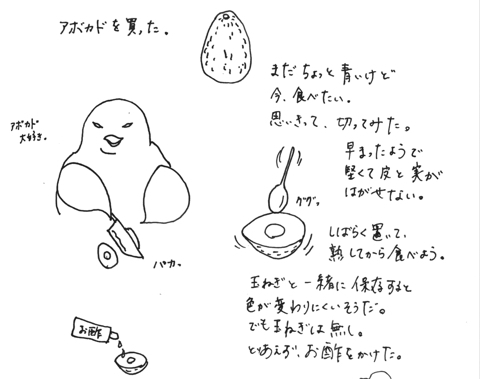 アボカドを買った。
まだちょっと青いけど
今、食べたい。
思いきって、切ってみた。
アボカド
大好き。
早まったようで
堅くて皮と実が
はがせない。
ググ。
パカ。
しばらく置いて、
熟してから食べよう。
玉ねぎと一緒に保存すると
色が変わりにくいそうだ。
でも玉ねぎは無し。
とりあえず、お酢をかけた。
お酢